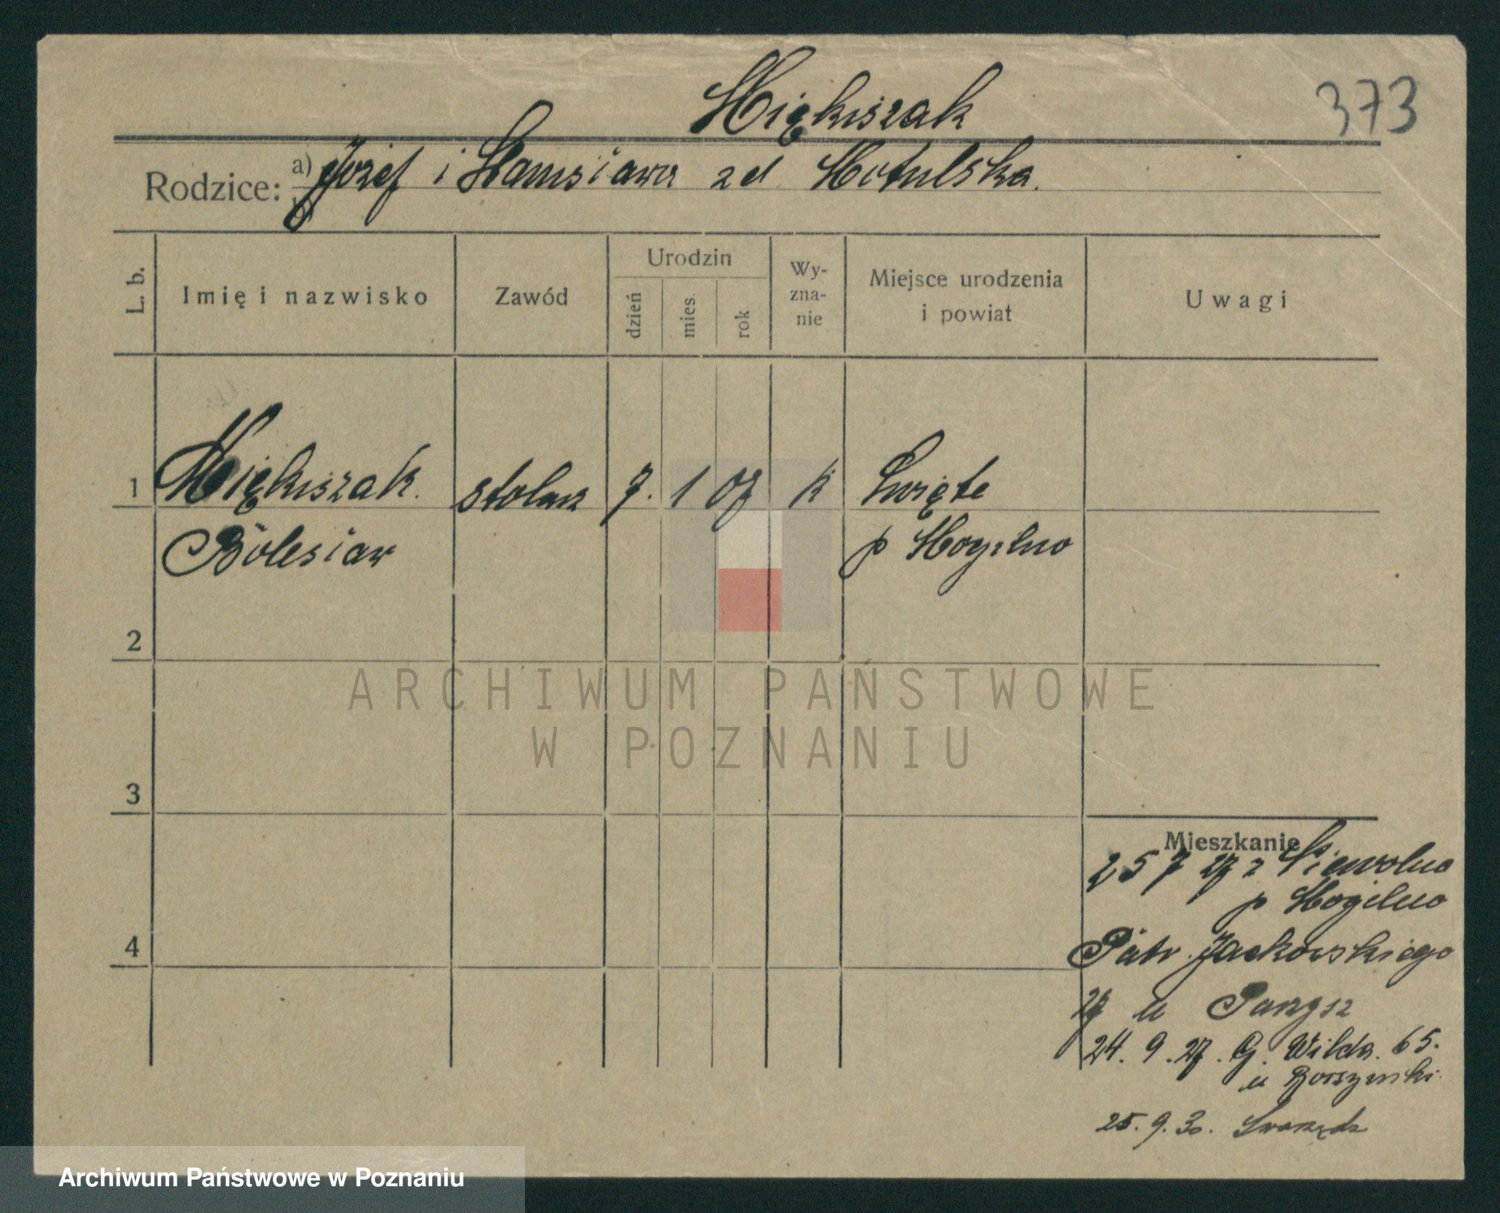 Miękiszak
373
Rodzice: a) Józef i Stanisława zd Motulska.
L. b.
Imię i nazwisko
Zawód
Urodzin
dzień
mies.
rok
Wy-
zna-
nie
Miejsce urodzenia
i powiat
Uwagi
1 Miękiszak stolarz 7. 1 07 k Święte
Bolesław p Mogilno
2
ARCHIWUM PAŃSTWOWE
W POZNANIU
3
Mieszkanie
25 7 27 z
p Mogilno
4
Patr. Jackowskiego
27 u
24. 9. 27. G. Wilda. 65.
u
25. 9. 30. Swarzędz
Archiwum Państwowe w Poznaniu